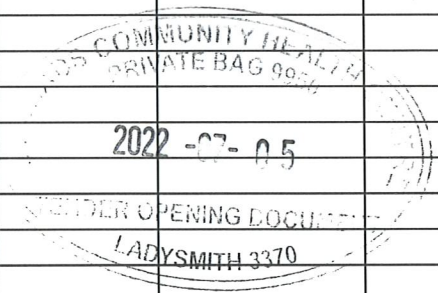 COMMUNITY HEALTH
PRIVATE BAG
2022 -07- 05
TENDER OPENING DOCUMENT
LADYSMITH 3370